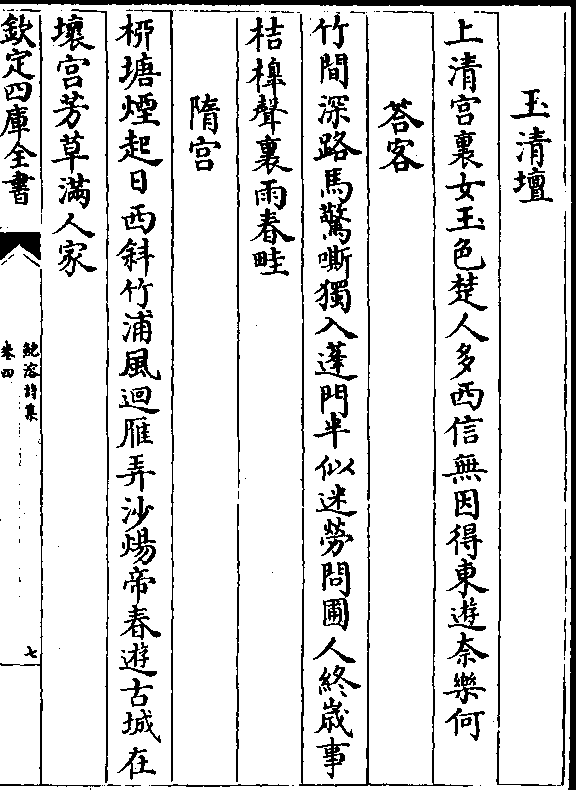 玉清壇
上清宮裏女玉色楚人多西信無因得東遊奈樂何
答客
竹間深路馬驚嘶獨入蓬門半似迷勞問圃人終歲事
桔槔聲裏雨春畦
隋宮
桞塘煙起日西斜竹浦風迴雁弄沙煬帝春遊古城在
壞宮芳草滿人家
欽定四庫全書
鮑溶詩集
卷四
七